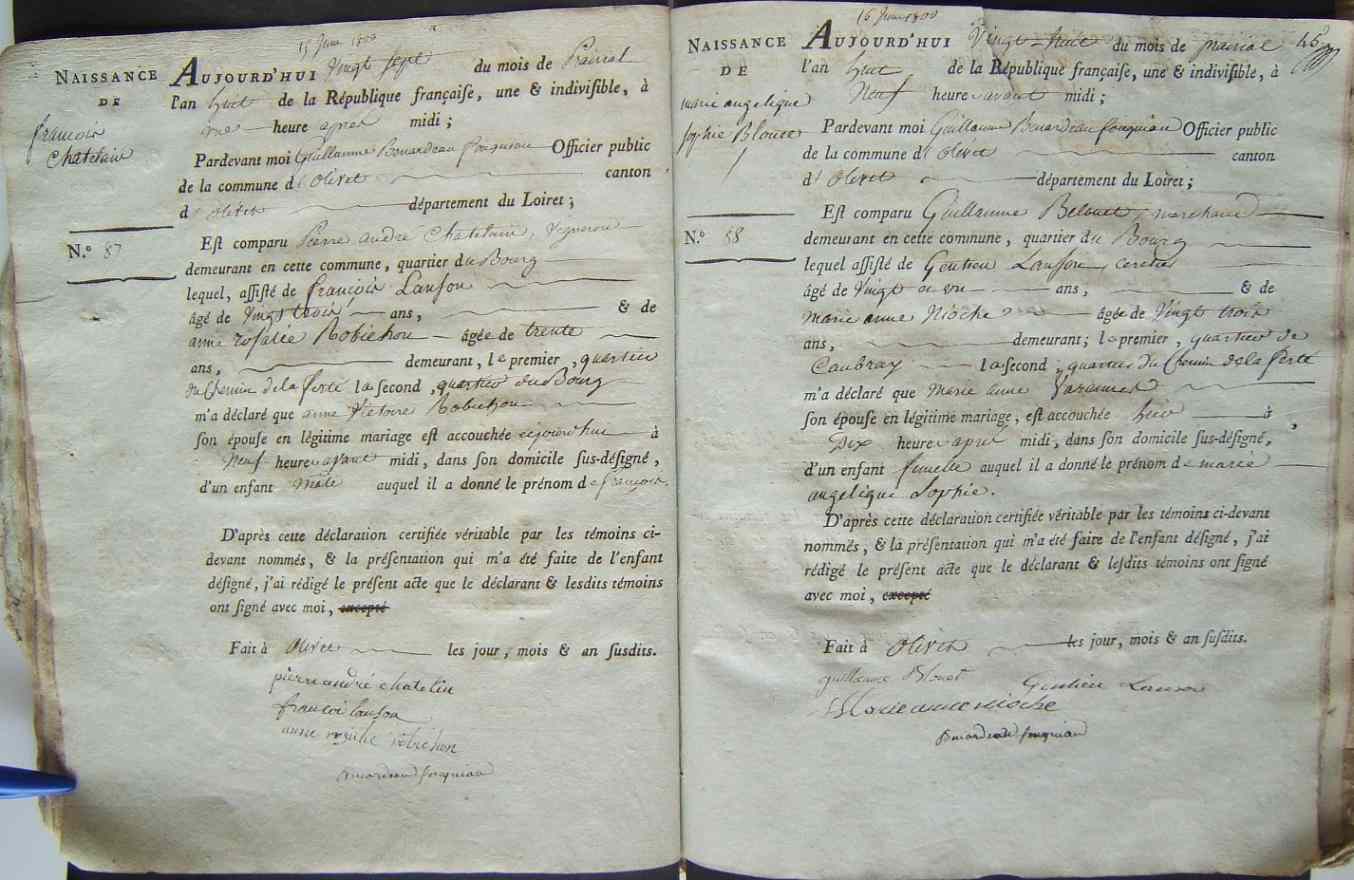 15 Juin 1800
NAISSANCE
DE
françois
Chatelain
N.º 87
AUJOURD'HUI Vingt sept du mois de Prairial
l'an huit de la République françaiſe, une & indiviſible, à
heure après midi ;
Pardevant moi Guillaume Bouardeau fouquiau Officier public
de la commune d'Olivet canton
d'Olivet département du Loiret ;
Eſt comparu Pierre andré Chatelain, Vigneron
demeurant en cette commune, quartier du Bourg
lequel, aſſiſté de françois Lanson
âgé de Vingt trois ans, & de
anne rosalie Robichon âgée de trente
ans, demeurant, le premier, quartier
du Chemin de la ferté la second, quartier du Bourg
m'a déclaré que anne Victoire Robichon
ſon épouſe en légitime mariage eſt accouchée aujourd'hui à
Neuf heures avant midi, dans ſon domicile ſus-déſigné,
d'un enfant Mâle auquel il a donné le prénom de françois.
D'après cette déclaration certifiée véritable par les témoins ci-
devant nommés, & la préſentation qui m'a été faite de l'enfant
déſigné, j'ai rédigé le préſent acte que le déclarant & leſdits témoins
ont ſigné avec moi, excepté
Fait à Olivet les jour, mois & an ſuſdits.
pierre andré chatelin
françoi lanson
anne rosalie robichon
Bouardeau fouquiau
16 Juin 1800
NAISSANCE
DE
marie angelique
Sophie Blouet
N.º 88
AUJOURD'HUI Vingt-huit du mois de prairial 45
l'an huit de la République françaiſe, une & indiviſible, à
Neuf heures avant midi ;
Pardevant moi Guillaume Bouardeau fouquiau Officier public
de la commune d'Olivet canton
d'Olivet département du Loiret ;
Eſt comparu Guillaume Belouet, marchand
demeurant en cette commune, quartier du Bourg
lequel aſſiſté de Gentien Lanson
âgé de Vingt ans, & de
marie anne Nioche âgée de Vingt trois
ans, demeurant ; le premier, quartier de
Caubray la second, quartier du Chemin de la ferté
m'a déclaré que Marie anne
ſon épouſe en légitime mariage, eſt accouchée hier à
Dix heures après midi, dans ſon domicile ſus-déſigné,
d'un enfant fimelle auquel il a donné le prénom de marie
angelique Sophie.
D'après cette déclaration certifiée véritable par les témoins ci-devant
nommés, & la préſentation qui m'a été faite de l'enfant déſigné, j'ai
rédigé le préſent acte que le déclarant & leſdits témoins ont ſigné
avec moi, excepté
Fait à Olivet les jour, mois & an ſuſdits.
guillaume Blouet Gentien Lanson
Marie anne nioche
Bouardeau fouquiau